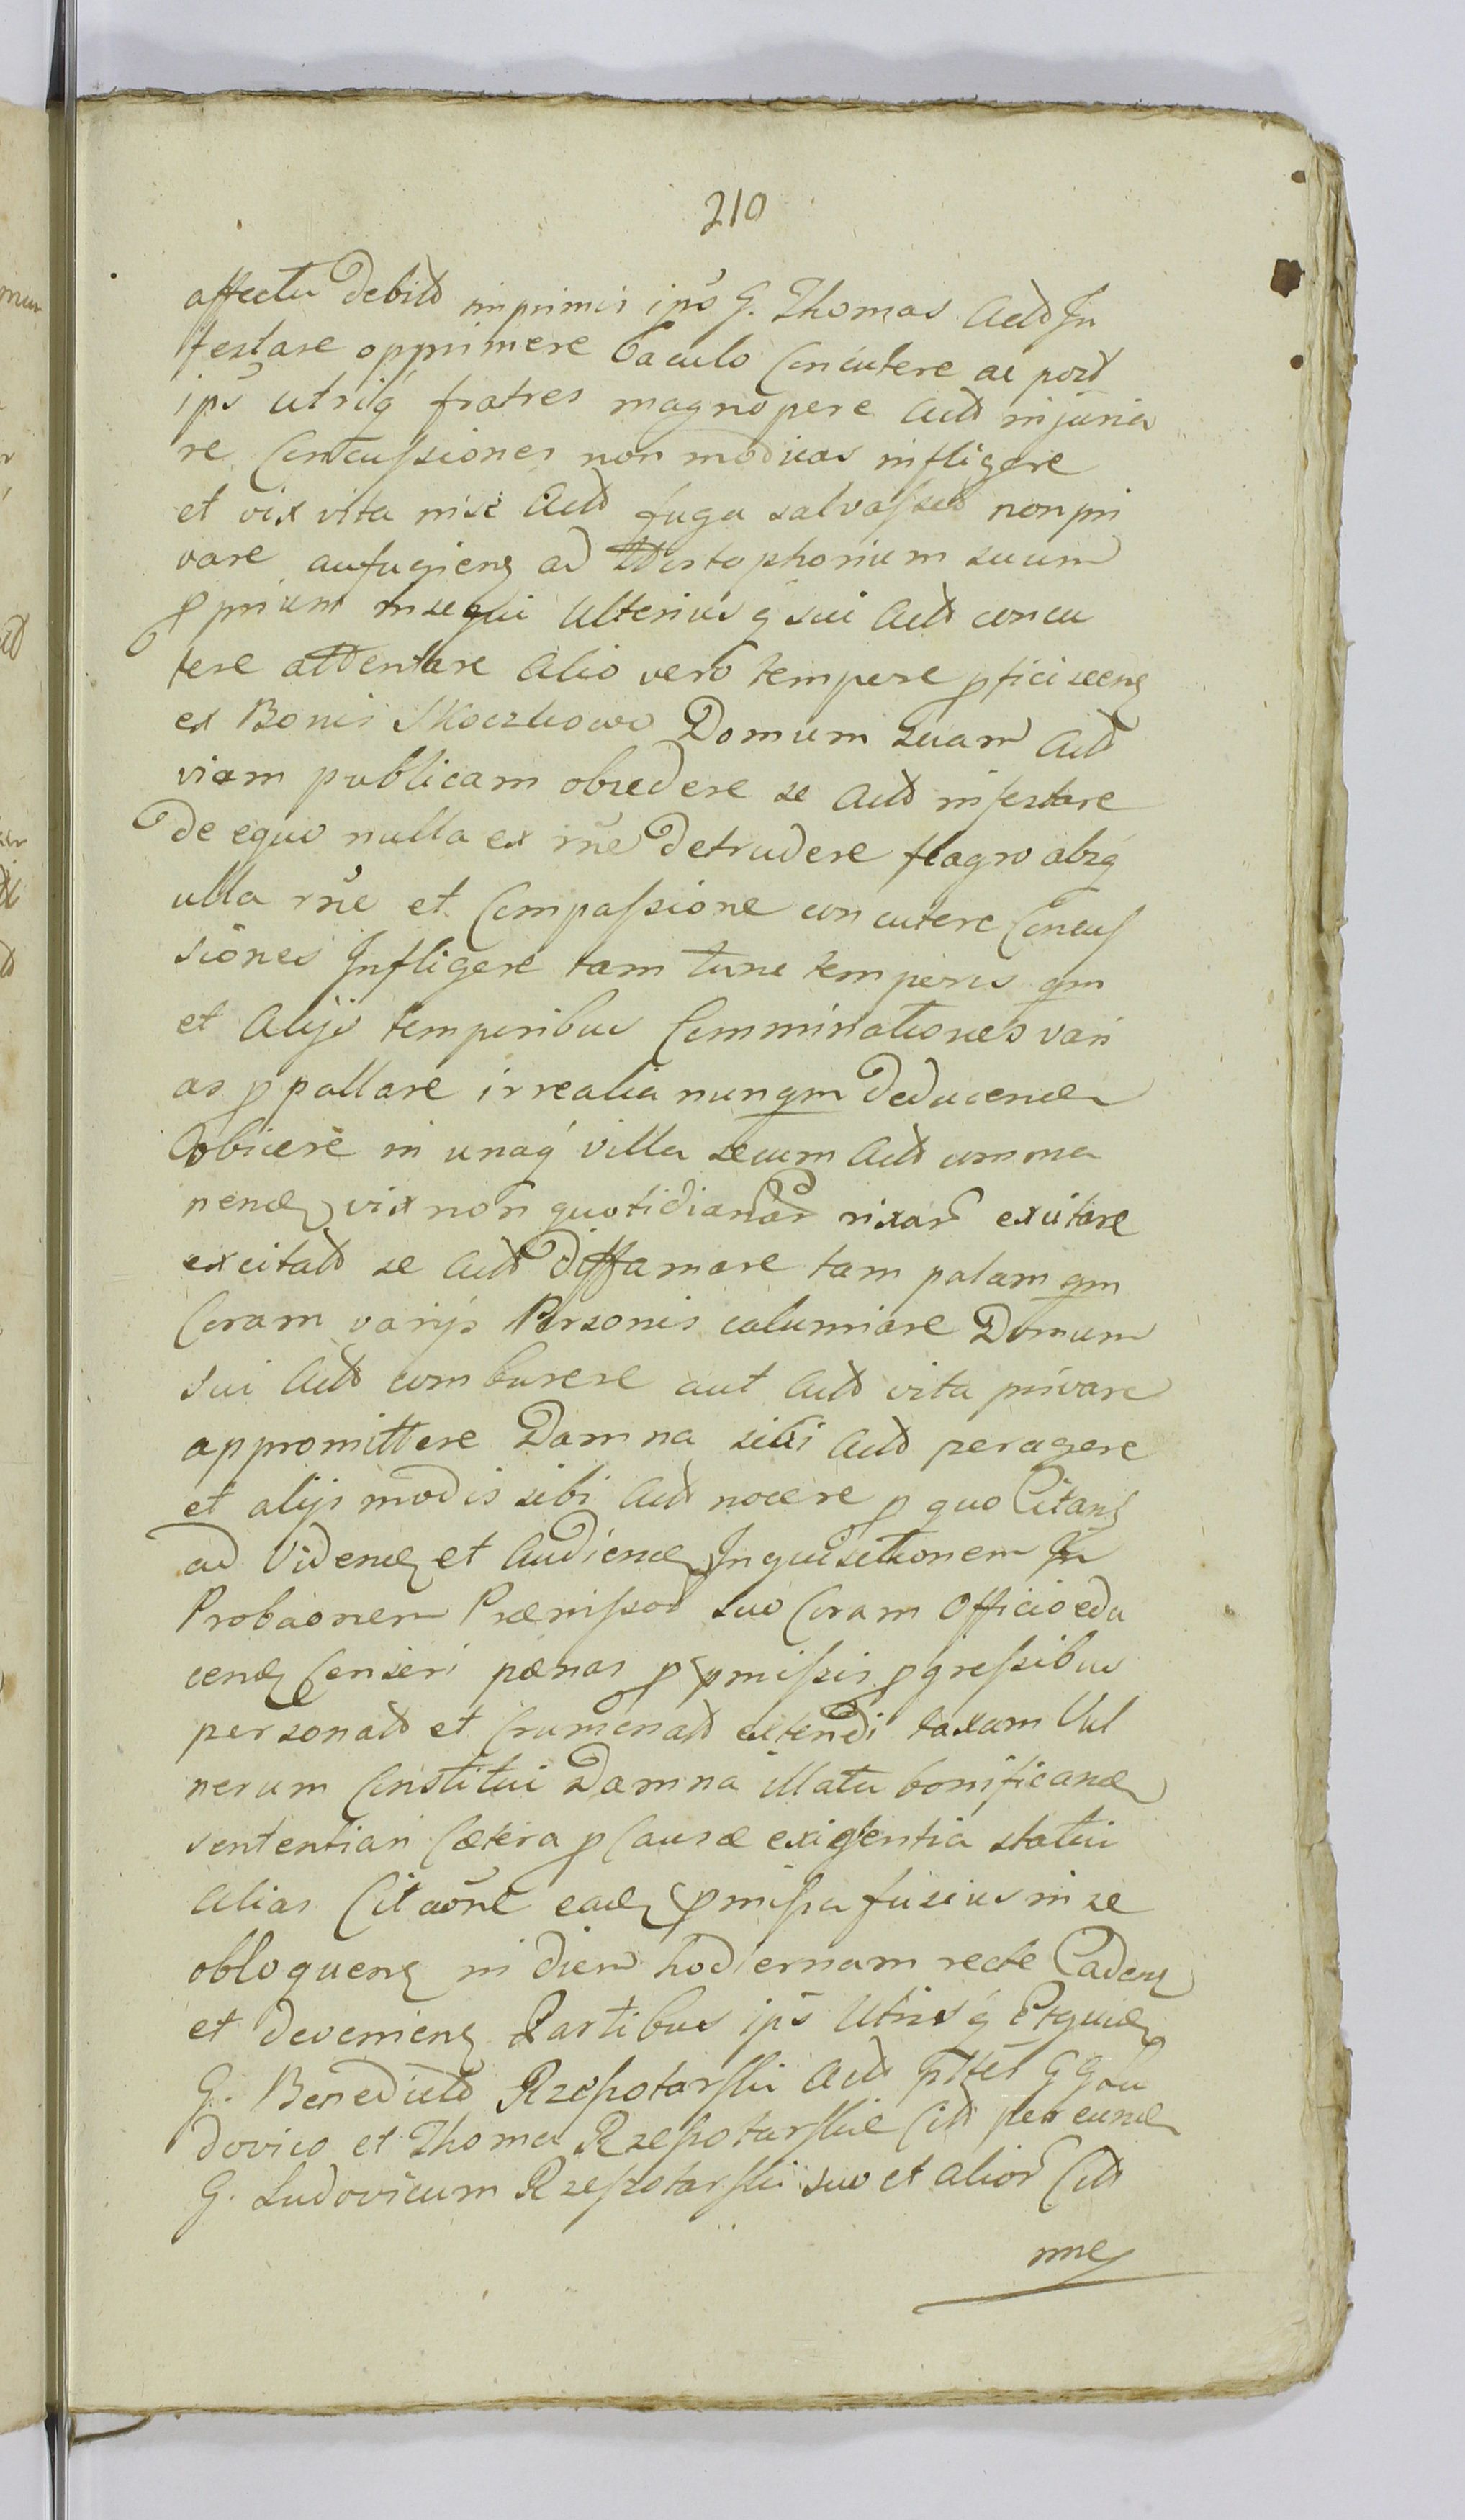 210
affectu debito imprimis ips G. Thomas Acto In
festare opprimere baculo Concutere ac post
ips utriq fratres magnopere Acto injuria
re Concussiones non modicas infligere
et vix vita nisi Acto fuga salvasset non pri
vare aufugiens ad suum
pprium insequi Ulterius q sui Acto concu
tere attentare Alio vero tempore pficiscens
ex Bonis Moczkowo Domum suam Acto
viam publicam obsedere se Acto infestare
de equo nulla ex rne detrudere flagro absq
ulla rne et Compassione concutere Concus
siones Infligere tam tunc temporis qm
et Alijs temporibus Comminationes vari
as ppallare irrealia nunqm deducend
obicere in unaq villa secum Acto comma
nend vix non quotidianar rixar excitare
excitat se Acto diffamare tam palam qm
Coram varijs Personis calumniare Domum
sui Acto comburere aut Acto vita privare
appromittere Damna sibi Acto peragere
et alijs modis sibi Acto nocere p quo Citans
ad Vidend et Audiend Inquisitionem In
Probaonem Præmissor suo Coram Officio edu
cend Censeri pænas p pmissis pgressibus
personat et Crumenat extendi taxam Vul
nerum Constitui Damna illata bonificand
sententiari Cætera p Causæ exigentia statui
Alias Citaone ead pmissa fusius in se
obloquens in diem hodiernam recte Cadens
et deveniens Partibus ips Utrisq
G. Benedicto Rzeszotarski Acto GG Lu
dovico et Thoma Rzeszotarskie Cit per eund
G. Ludovicum Rzeszotarski suo et alior Cit
nne